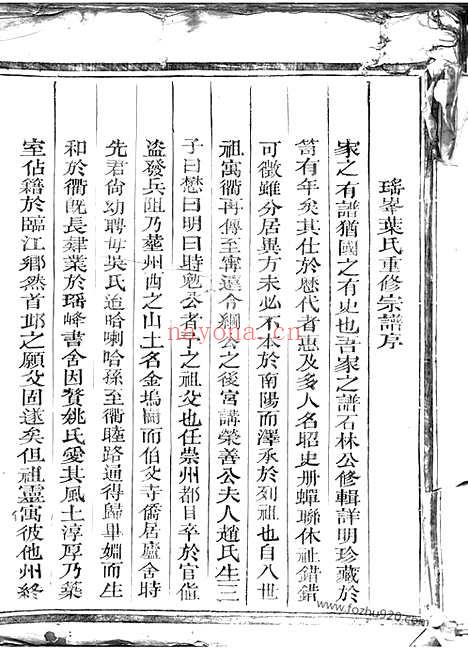 瑤峯葉氏重修宗譜序
家之有譜猶國之有史也吾家之譜石林公修輯詳明珍藏於
笥有年矣其仕於歷代者惠及多人名昭史册蟬聯休祉錯錯
可徵雖分居異方未必不本於南陽而澤承於列祖也自八世
祖寓衢再傳至寗遠令綱公之後宮講榮善公夫人趙氏生三
子曰懋曰明曰時勉公者予之祖父也任崇州都目卒於官值
盗發兵阻乃塟州西之山土名金塢闗而伯父寺僑居廬舍時
先君尙幼聘毋吳氏迨哈喇哈孫至衢睦路通得歸畢婣而生
和於衢旣長肄業於瑤峰書舍因贅姚氏愛其風土淳厚乃葉
室佔籍於臨江鄉然首邱之願父固遂矣但祖靈寓彼他州終
nayona.cn
www.fozhu920.com